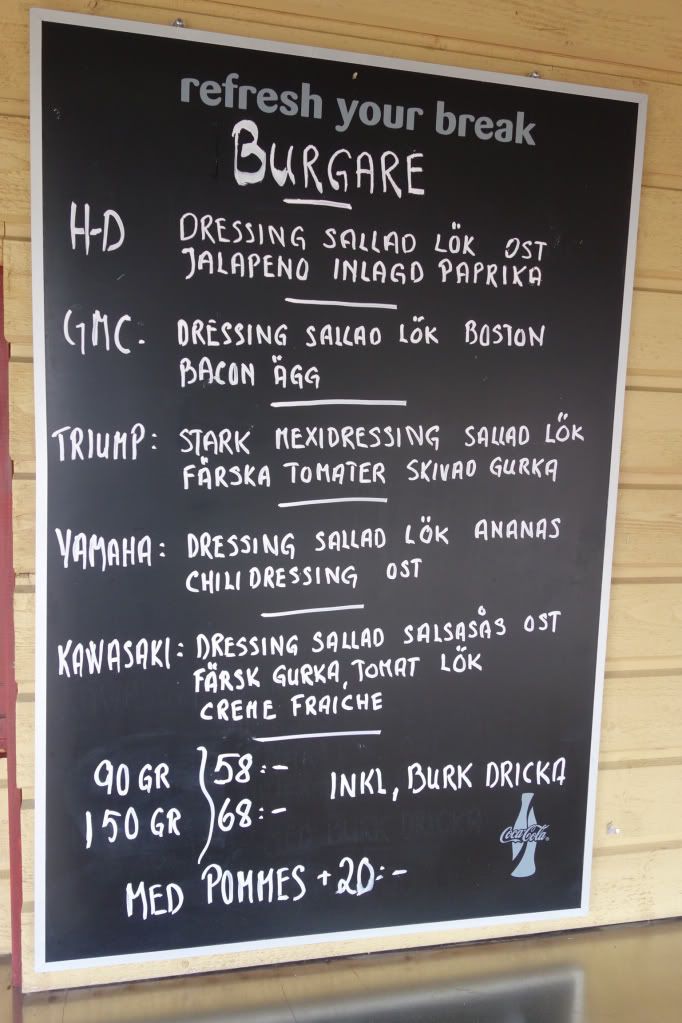 refresh your break
BURGARE
H-D DRESSING SALLAD LÖK OST
JALAPENO INLAGD PAPRIKA
GMC. DRESSING SALLAD LÖK BOSTON
BACON ÄGG
TRIUMP: STARK MEXIDRESSING SALLAD LÖK
FÄRSKA TOMATER SKIVAD GURKA
YAMAHA: DRESSING SALLAD LÖK ANANAS
CHILIDRESSING OST
KAWASAKI: DRESSING SALLAD SALSASÅS OST
FÄRSK GURKA, TOMAT LÖK
CREME FRAICHE
90 GR ) 58:- INKL, BURK DRICKA
150 GR ) 68:-
Coca-Cola
MED POMMES +20:-